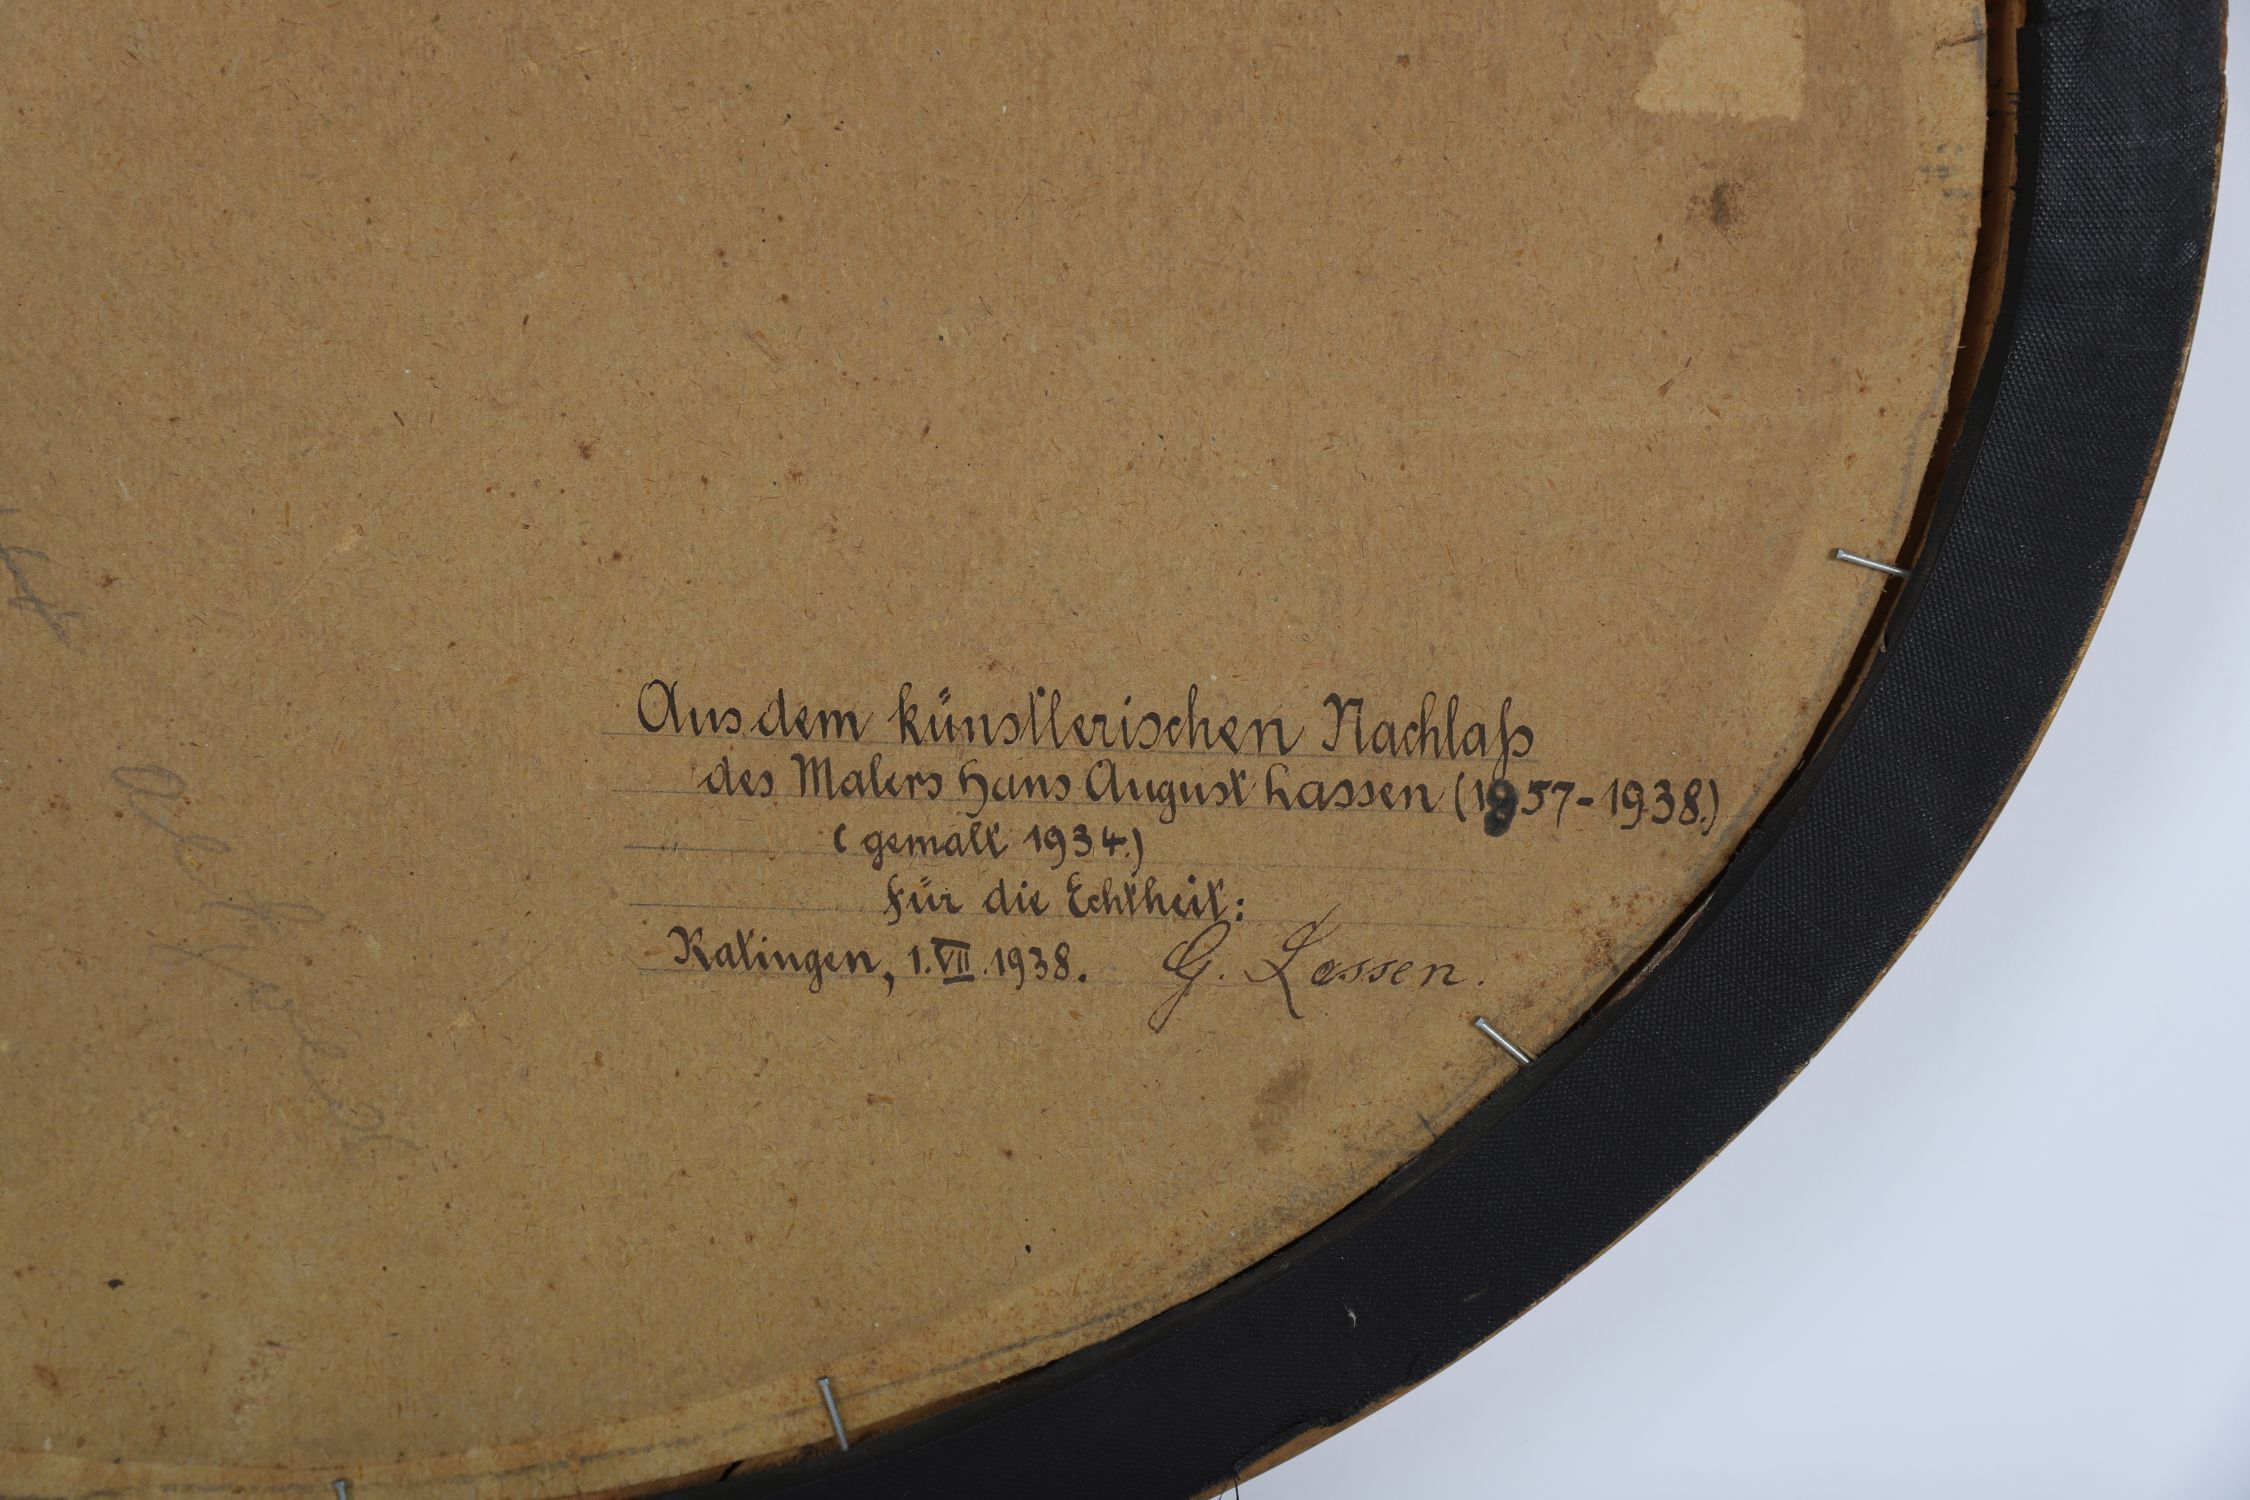 Aus dem künstlerischen Nachlaß
des Malers Hans August Lassen (1857-1938.)
(gemalt 1934.)
Für die Echtheit:
Ratingen, 1.VII.1938. G. Lassen.